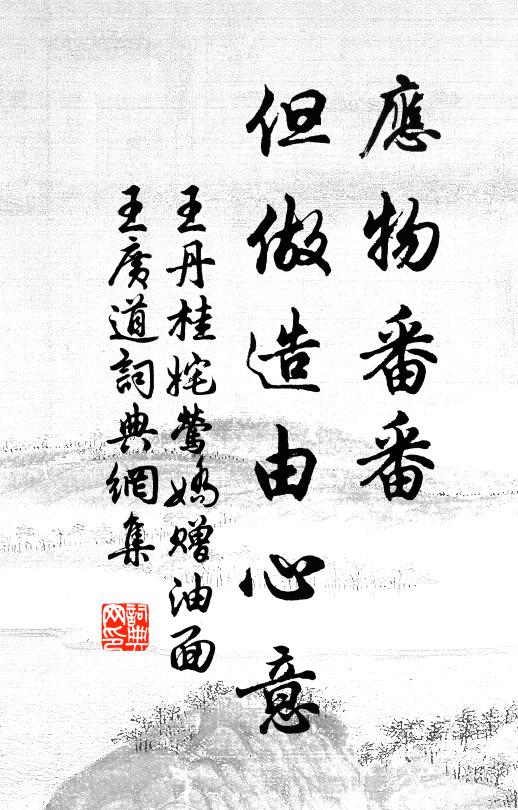 應物番番
但做造由心意
王丹桂姹鶯嬌贈油面
王廣道詞典網集
詞典
網印